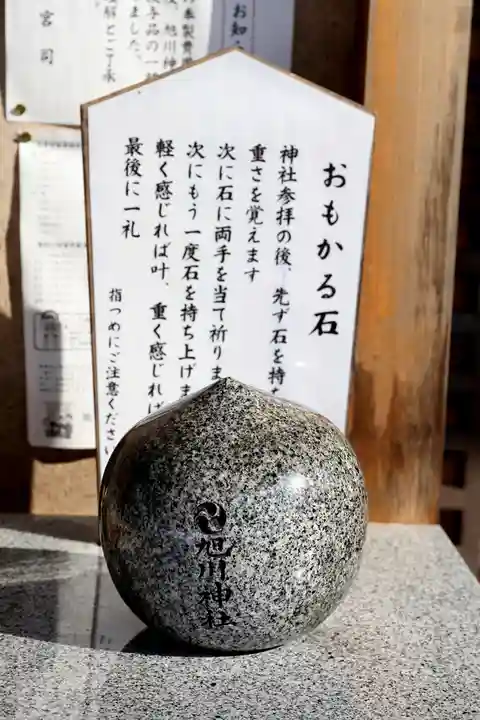 おもかる石
神社参拝の後、先ず石を持ち
重さを覚えます
次に石に両手を当て祈りま
次にもう一度石を持ち上げま
軽く感じれば叶、重く感じれば
最後に一礼
指つめにご注意ください
旭川神社
お知ら
奉製費
旭川神
授与品の一
ました。
理解とご了承
宮司